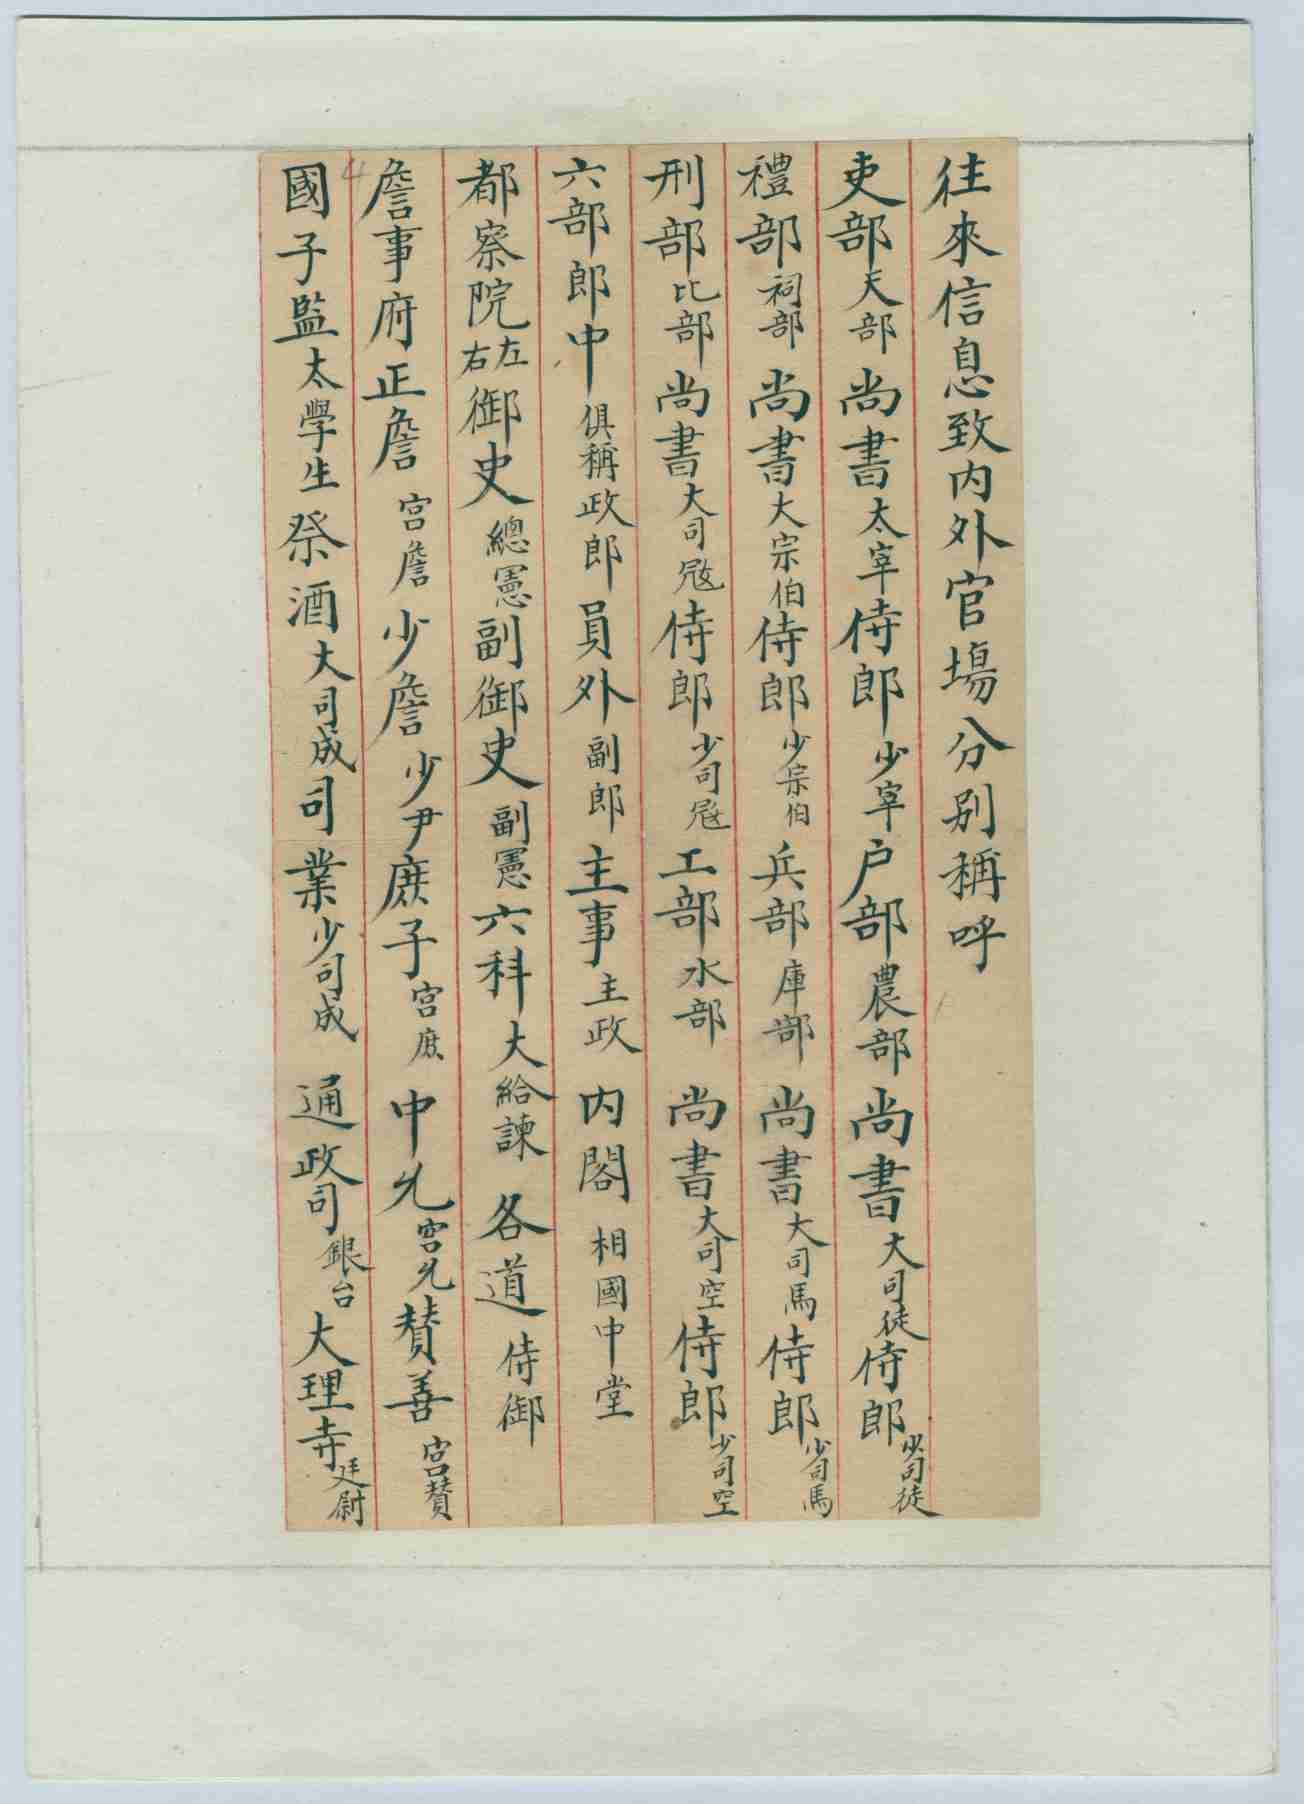 往來信息致内外官場分别稱呼
吏部天部尚書太宰侍郎少宰户部農部尚書大司徒侍郎少司徒
禮部祠部尚書大宗伯侍郎少宗伯兵部庫部尚書大司馬侍郎少司馬
刑部比部尚書大司寇侍郎少司寇工部水部尚書大司空侍郎少司空
六部郎中俱稱政郎員外副郎主事主政内閣相國中堂
都察院左右御史總憲副御史副憲六科大給諫各道侍御
詹事府正詹宫詹少詹少尹庶子宫庶中允宫允賛善宫賛
國子監太學生祭酒大司成司業少司成通政司銀台大理寺廷尉
4